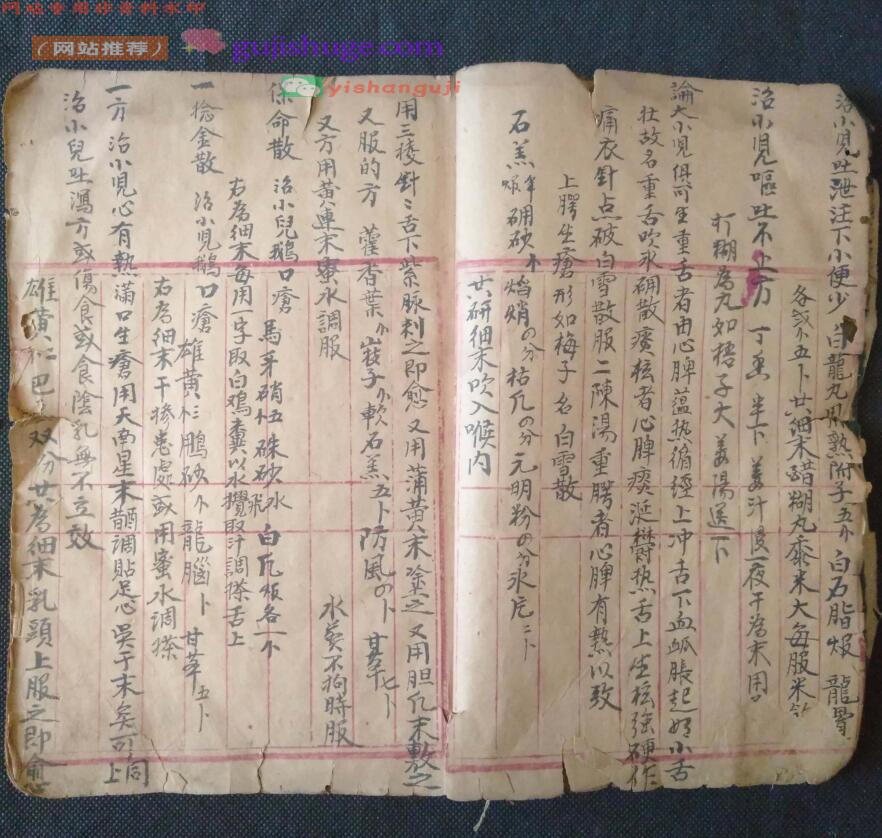 网站专用非资料水印
（网站推荐）
gujishuge.com
yishanguji
治小児吐泄注下小便少 白龍丸用熟附子五卜 白石脂煅 龍骨
各弍卜五卜 共細末醋糊丸黍米大每服米飲
治小児嘔吐不止方 丁香 半下 姜汁浸一夜干為末用
打糊為丸如梧子大 姜湯送下
論大小児俱可生重舌者由心脾蘊热循經上冲舌下血脈脹起如小舌
壮故名重舌吹氷硼散 痰核者心脾痰涎欝热舌上生核强硬作
痛衣針点破白雪散服二陳湯重腭者心脾有熱以致
上腭生瘡形如梅子名 白雪散
石羔 煅 硼砂 焰焇の分 枯凢の分 元明粉の分 氷片二卜
共研細末吹入喉内
用三稜針〻舌下紫脉刺之即愈 又用蒲黄末塗之 又用胆凢末敷之
又服的方 藿香葉 山枝子 軟石羔五卜 防風の卜 甘草七卜
又方用黄連末蜜水調服 水煎不拘時服
保命散 治小兒鵝口瘡 馬牙硝 硃砂水飛 白凢煅各一个
右為細末每用一字取白鸡糞以水攪取汁調搽舌上
一捻金散 治小児鵝口瘡 雄黄 鵬砂 龍腦卜 甘草五卜
右為細末干摻患處或用蜜水調搽
一方 治小児心有熱滿口生瘡用天南星末醋調貼足心 吳于末矣可上同
治小兒吐瀉方或傷食或食陰乳無不立效
雄黄 巴豆 双分共為細末乳頭上服之即愈